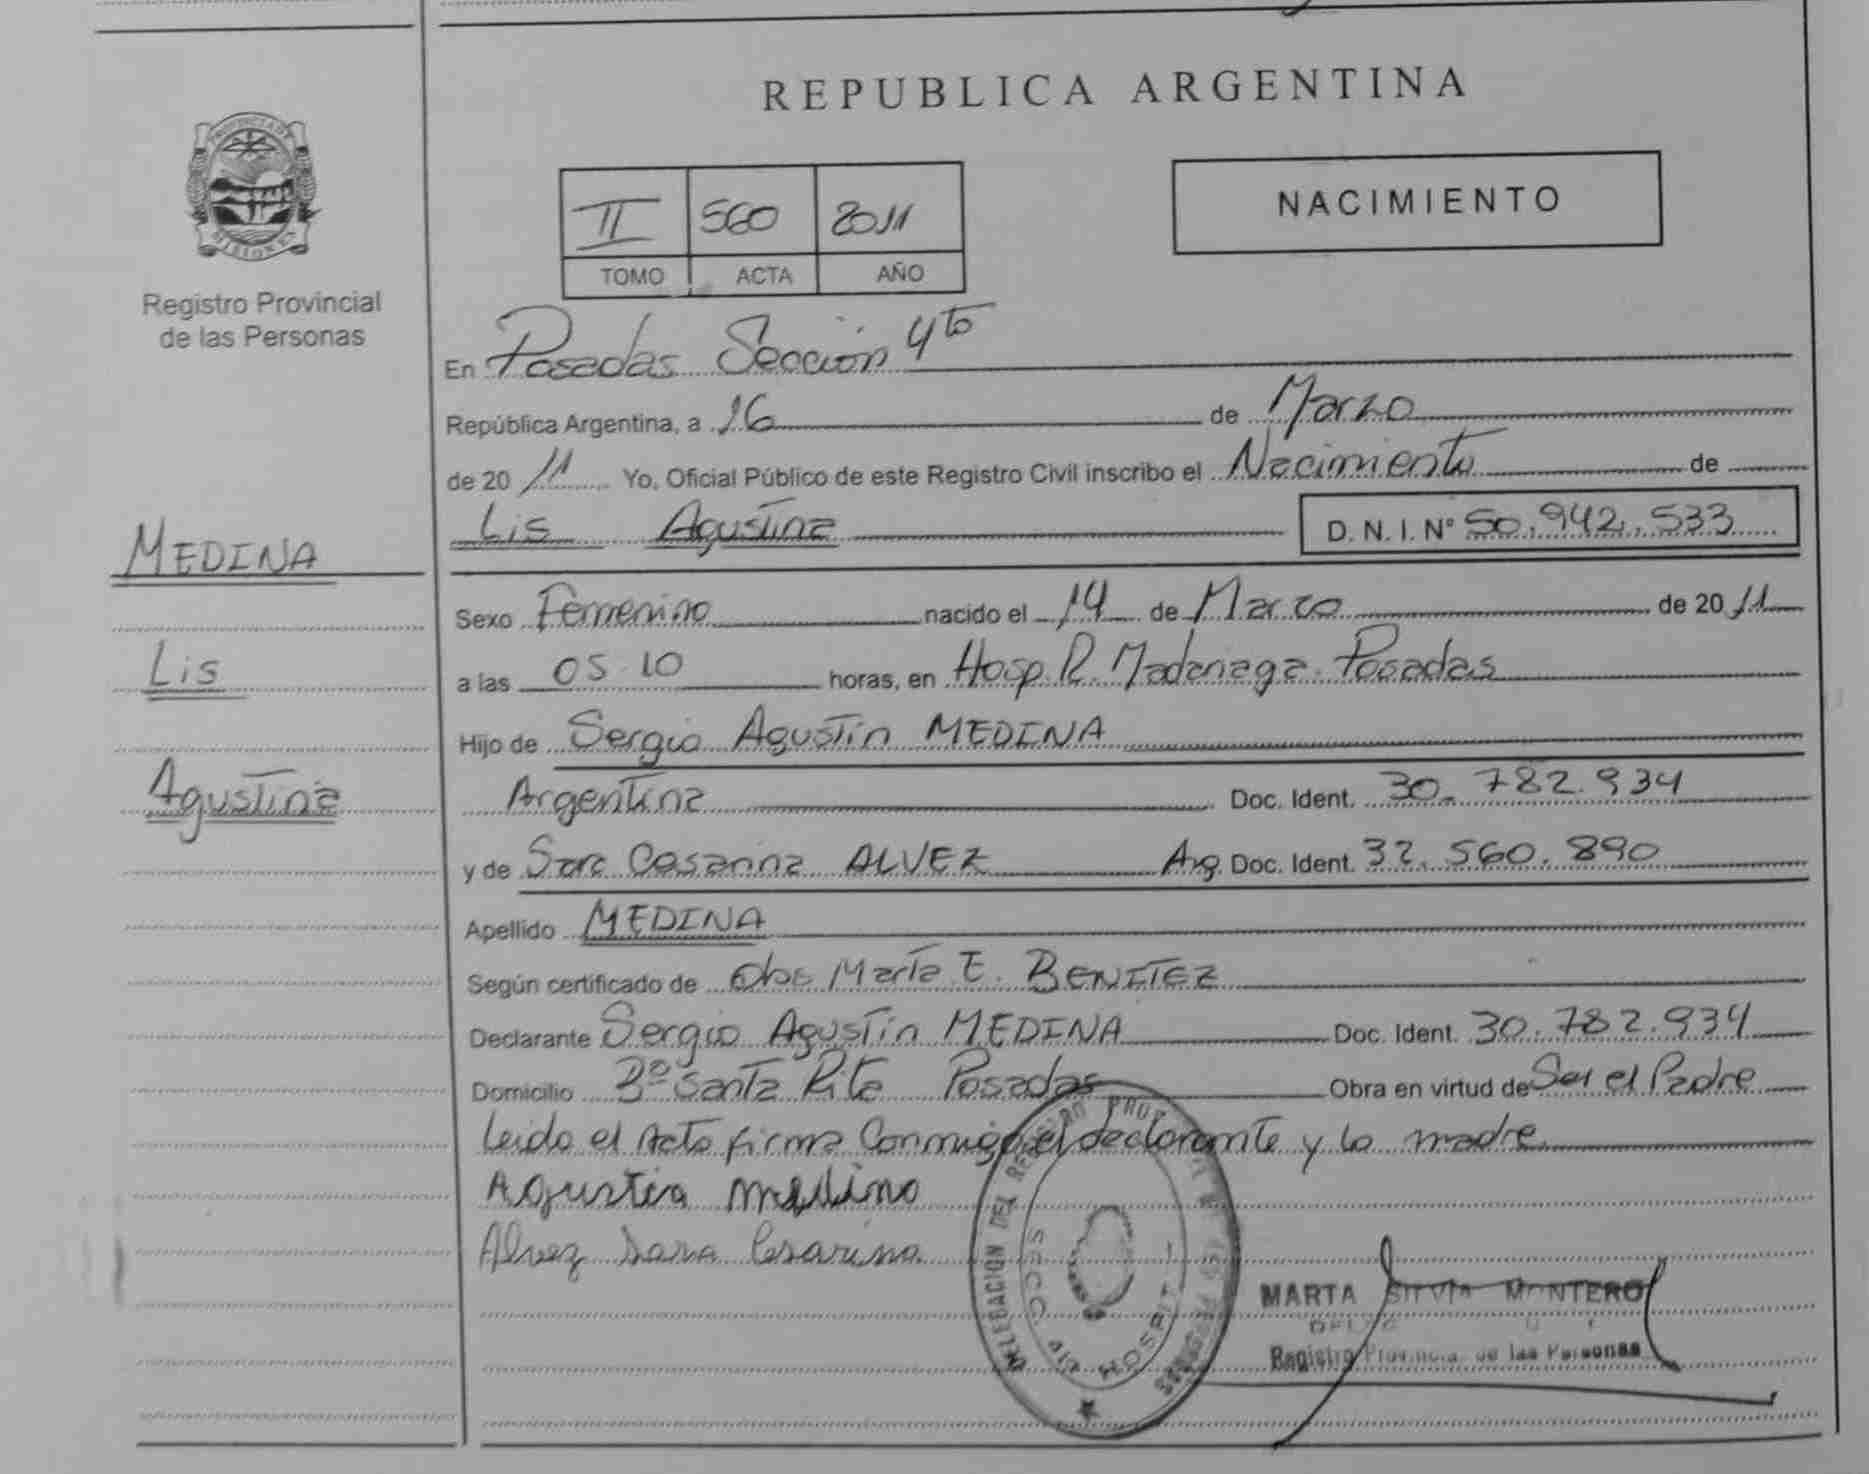 REPUBLICA ARGENTINA
PROVINCIA DE
MISIONES
Registro Provincial
de las Personas
NACIMIENTO
II 560 2011
TOMO ACTA AÑO
En Posadas Sección 4to
República Argentina, a 16 de Marzo
de 2011 Yo, Oficial Público de este Registro Civil inscribo el Nacimiento de
Lis Agustina D. N. I. Nº 50.942.533
MEDINA
Lis
Agustina
Sexo Femenino nacido el 14 de Marzo de 2011
a las 05 10 horas, en Hosp. R. Madariaga. Posadas
Hijo de Sergio Agustín MEDINA
Argentina Doc. Ident. 30.782.934
y de Sara Cesarina ALVEZ Arg. Doc. Ident. 32.560.890
Apellido MEDINA
Según certificado de Obs María E. BENITEZ
Declarante Sergio Agustín MEDINA Doc. Ident. 30.782.934
Domicilio Bº Santa Rita Posadas Obra en virtud de Ser el Padre
Leida el Acta firma Conmigo el declarante y la madre
Agustin medina
Alvez Sara Cesarina
DELEGACION DEL REGISTRO DE LAS PERSONAS
SECC. 4ta HOSPIT
MARTA SILVIA MONTERO
Registro Provincial de las Personas